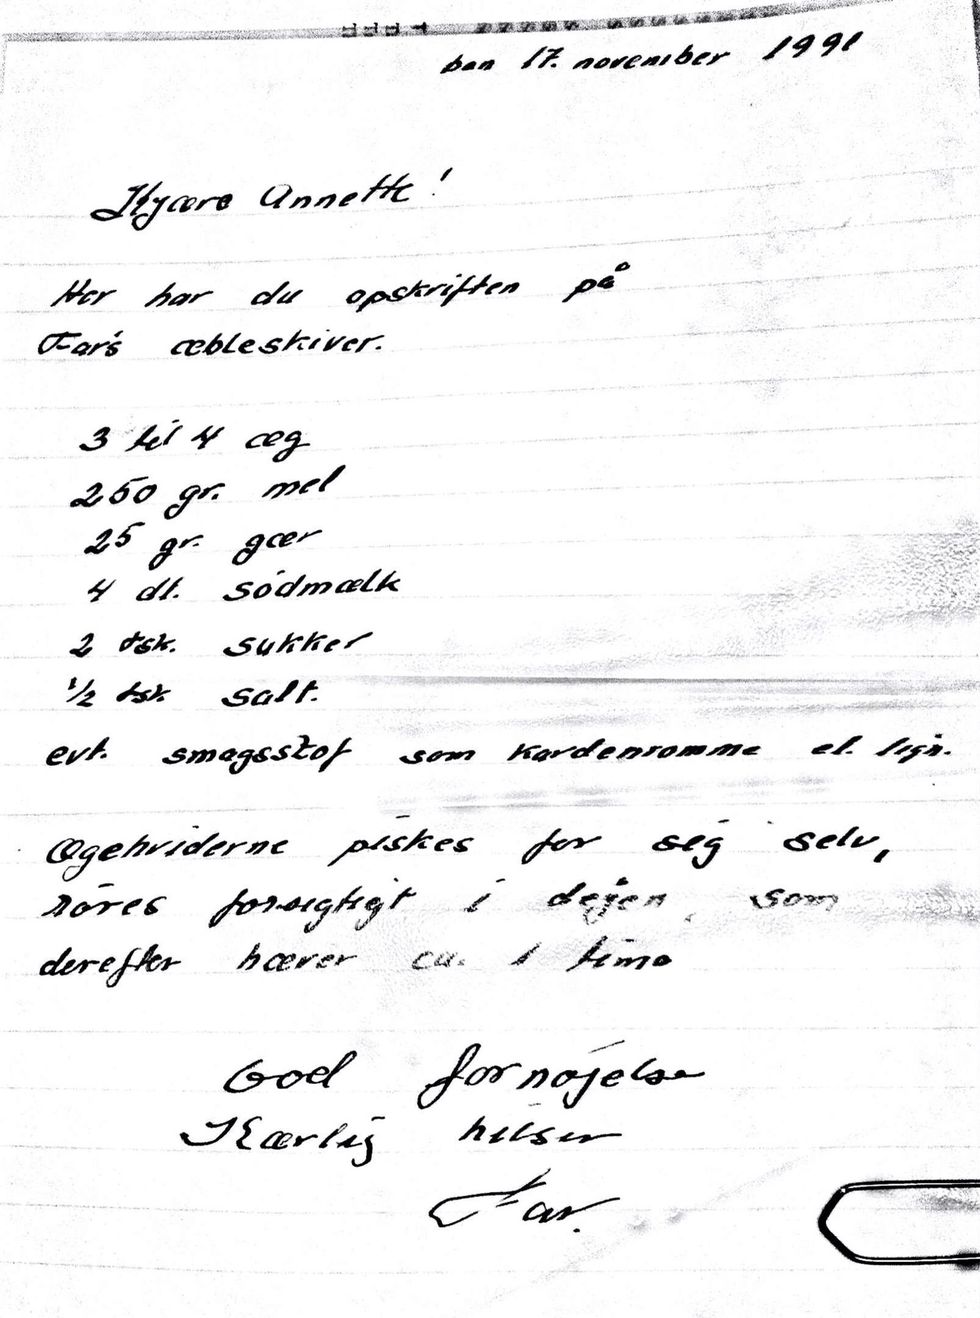 den 17. november 1991
Kjære Annette!
Her har du opskriften på
Far's æbleskiver.
3 til 4 æg
250 gr. mel
25 gr. gær
4 dl. södmælk
2 tsk. sukker
1/2 tsk salt.
evt. smagsstof som kardemomme el. lign.
Æggehviderne piskes for sig selv,
röres forsigtigt i dejen, som
derefter hæver ca. 1 time
God fornöjelse
Kærlig hilsen
Far.